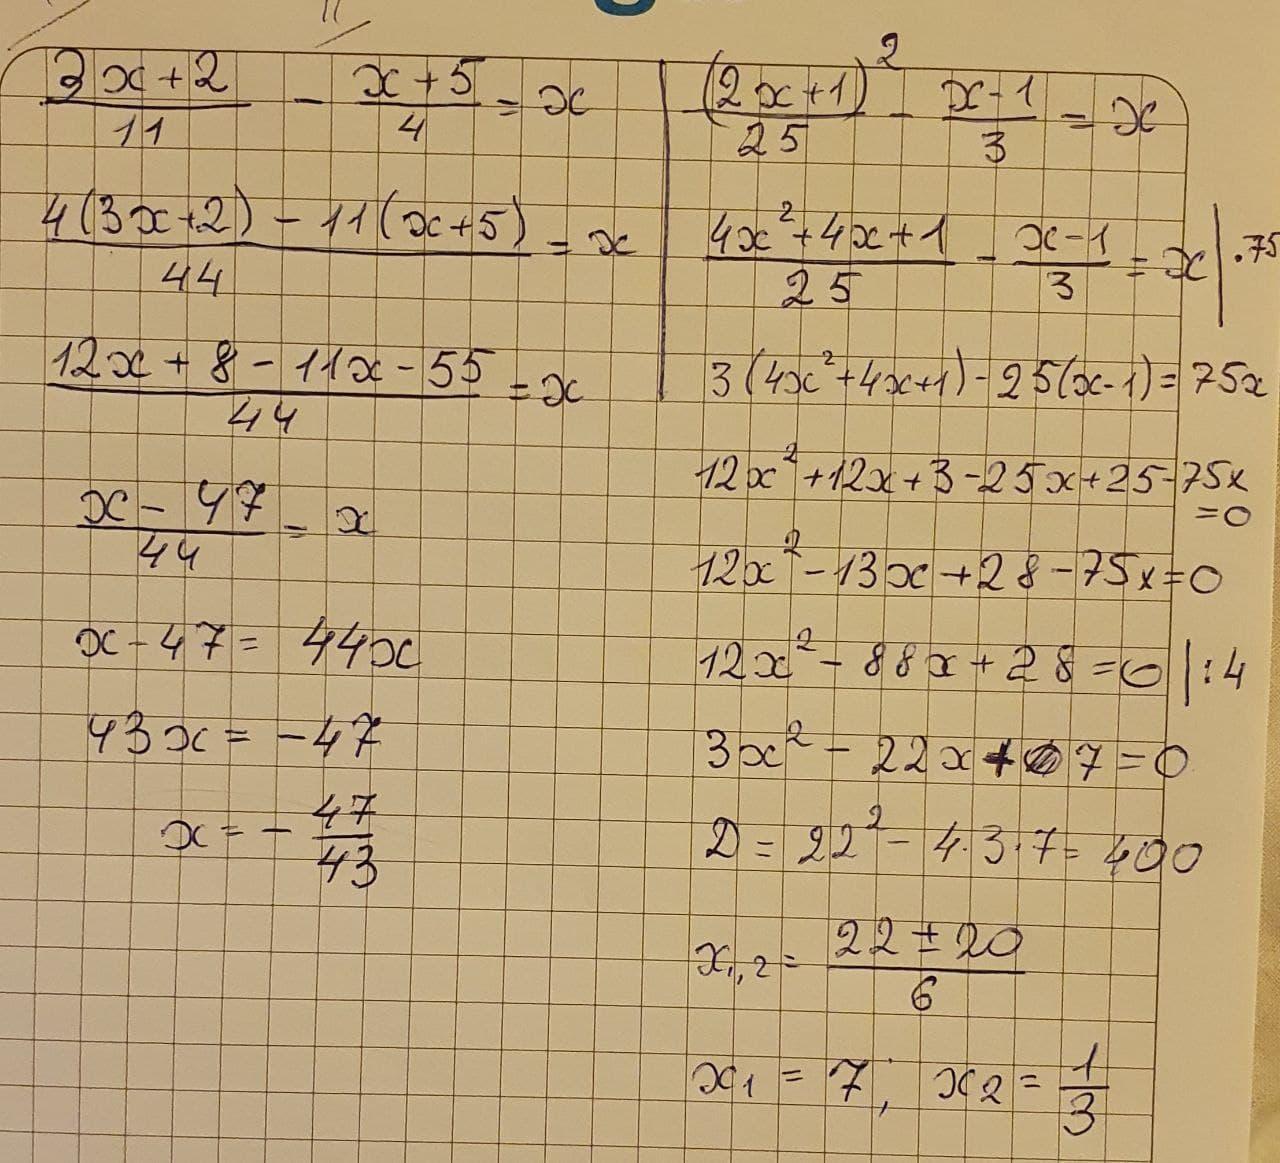 (3x+2)/11 - (x+5)/4 = x
(4(3x+2) - 11(x+5))/44 = x
(12x + 8 - 11x - 55)/44 = x
(x - 47)/44 = x
x - 47 = 44x
43x = -47
x = - 47/43
(2x+1)²/25 - (x-1)/3 = x
(4x²+4x+1)/25 - (x-1)/3 = x | ·75
3(4x²+4x+1) - 25(x-1) = 75x
12x²+12x+3-25x+25-75x
=0
12x² - 13x + 28 - 75x = 0
12x² - 88x + 28 = 0 | :4
3x² - 22x + 7 = 0
D = 22² - 4·3·7 = 400
x₁,₂ = (22 ± 20)/6
x₁ = 7; x₂ = 1/3